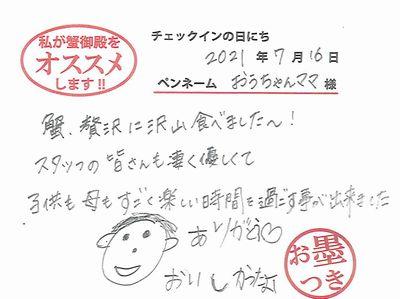 私が蟹御殿を
オススメ
します!!
チェックインの日にち
2021年7月16日
ペンネーム おうちゃんママ 様
蟹、贅沢に沢山食べました〜!
スタッフの皆さんも凄く優しくて
子供も母もすごく楽しい時間を過ごす事が出来ました
ありがとう♡
おいしかったよ
お墨
つき